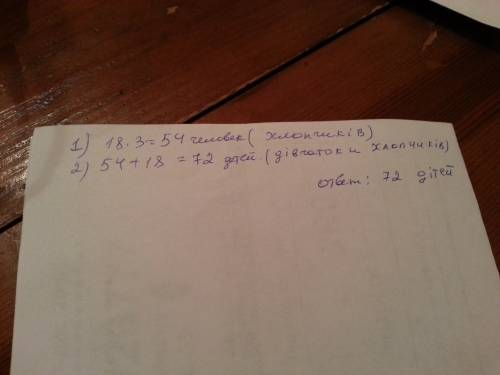 1) 18·3=54 человек (хлопчиків)
2) 54+18 = 72 дітей. (дівчаток и хлопчиків)
ответ: 72 дітей